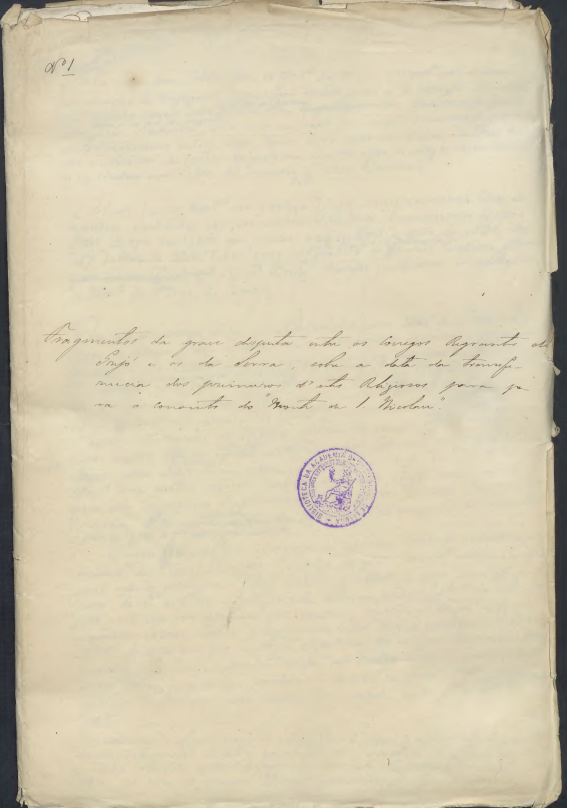 Nº 1
Fragmentos da grave disputa entre os Conegos Regrantes de
Grijó e os da Serra, sobre a data da transfe-
rencia dos primeiros d'estes Religiosos para
o convento do "Monte de S. Nicolau".
BIBLIOTECA DA ACADEMIA DAS